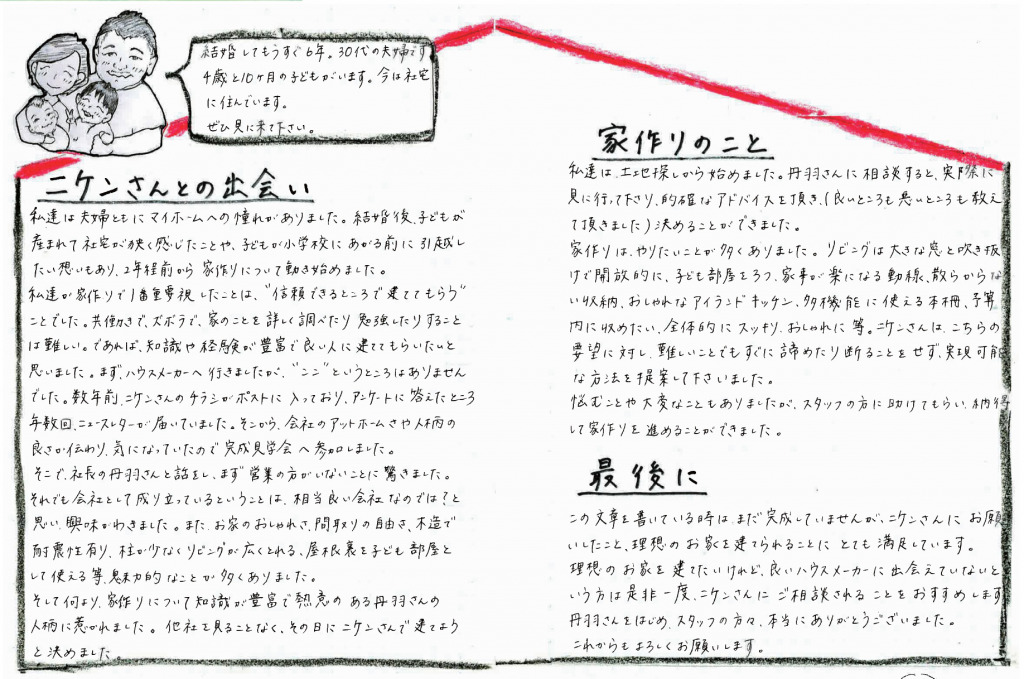 結婚してもうすぐ6年。30代の夫婦です
4歳と10ヶ月の子どもがいます。今は社宅
に住んでいます。
ぜひ見に来て下さい。
ニケンさんとの出会い
私達は夫婦ともにマイホームへの憧れがありました。結婚後、子どもが
産まれて社宅が狭く感じたことや、子どもが小学校にあがる前に引越し
たい想いもあり、2年程前から家作りについて動き始めました。
私達が家作りで1番重要視したことは、“信頼できるところで建ててもらう”
ことでした。共働きで、ズボラで、家のことを詳しく調べたり勉強したりすること
は難しい。であれば、知識や経験が豊富で良い人に建ててもらいたいと
思いました。まず、ハウスメーカーへ行きましたが、“ここ”というところはありません
でした。数年前、ニケンさんのチラシがポストに入っており、アンケートに答えたところ
年数回、ニュースレターが届いていました。そこから、会社のアットホームさや人柄の
良さが伝わり、気になっていたので完成見学会へ参加しました。
そこで、社長の丹羽さんと話をし、まず営業の方がいないことに驚きました。
それでも会社として成り立っているということは、相当良い会社なのでは?と
思い、興味がわきました。また、お家のおしゃれさ、間取りの自由さ、木造で
耐震性有り、柱が少なくリビングが広くとれる、屋根裏を子ども部屋と
して使える等、魅力的なことが多くありました。
そして何より、家作りについて知識が豊富で熱意のある丹羽さんの
人柄に惹かれました。他社を見ることなく、その日にニケンさんで建てよう
と決めました。
家作りのこと
私達は、土地探しから始めました。丹羽さんに相談すると、実際に
見に行って下さり、的確なアドバイスを頂き、(良いところも悪いところも教え
て頂きました)決めることができました。
家作りは、やりたいことが多くありました。リビングは大きな窓と吹き抜
けで開放的に、子ども部屋を3つ、家事が楽になる動線、散らからな
い収納、おしゃれなアイランドキッチン、多機能に使える本棚、予算
内に収めたい、全体的にスッキリ、おしゃれに等。ニケンさんは、こちらの
要望に対し、難しいことでもすぐに諦めたり断ることをせず、実現可能
な方法を提案して下さいました。
悩むことや大変なこともありましたが、スタッフの方に助けてもらい、納得
して家作りを進めることができました。
最後に
この文章を書いている時は、まだ完成していませんが、ニケンさんにお願
いしたこと、理想のお家を建てられることにとても満足しています。
理想のお家を建てたいけれど、良いハウスメーカーに出会えていないと
いう方は是非一度、ニケンさんにご相談されることをおすすめします
丹羽さんをはじめ、スタッフの方々、本当にありがとうございました。
これからもよろしくお願いします。